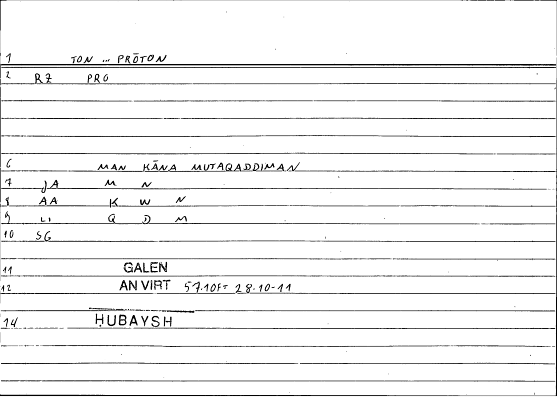 1 TON ... PRŌTON
2 RZ PRO
6 MAN KĀNA MUTAQADDIMAN
7 JA M N
8 AA K W N
9 LI Q D M
10 SG
11 GALEN
12 AN VIRT 57.10F= 28.10-11
14 ḤUBAYSH